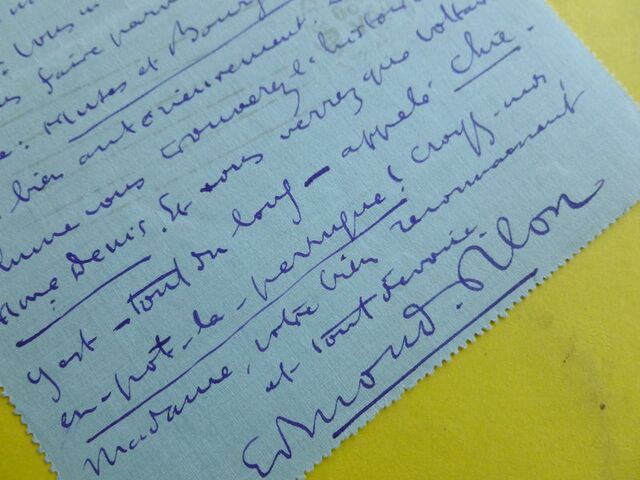 Vous
faire
: Muses et Bourg
bien antérieurement.
vous trouverez l'histoire
Mme Denis. Et vous verrez que Voltaire
y est - tout du long - appelé Chie-
en-pot-la-perruque! Croyez-moi,
Madame, votre bien reconnaissant
et tout dévoué.
Edmond Pilon